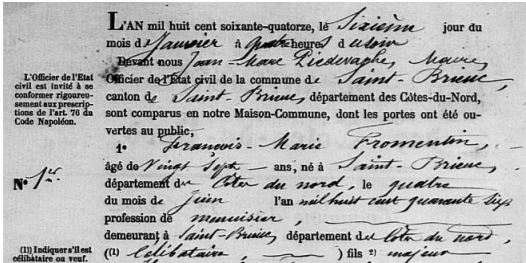 L'AN mil huit cent soixante-quatorze, le Sixième jour du
mois de Janvier à quatre heures du soir
Devant nous Jean-Marc Piedevache, Maire,
Officier de l'État civil de la commune de Saint-Brieuc,
canton de Saint-Brieuc, département des Côtes-du-Nord,
sont comparus en notre Maison-Commune, dont les portes ont été ou-
vertes au public,
1° François-Marie Fromentin,
âgé de Vingt Sept ans, né à Saint-Brieuc,
département du Côtes du nord, le quatre
du mois de Juin l'an mil huit cent quarante Six
profession de menuisier,
demeurant à Saint-Brieuc, département du Côtes du nord,
((1) Célibataire, ) fils (2) majeur
L'Officier de l'État
civil est invité à se
conformer rigoureu-
sement aux prescrip-
tions de l'art. 76 du
Code Napoléon.
N° 1er
(1)) Indiquer s'il est
célibataire ou veuf.